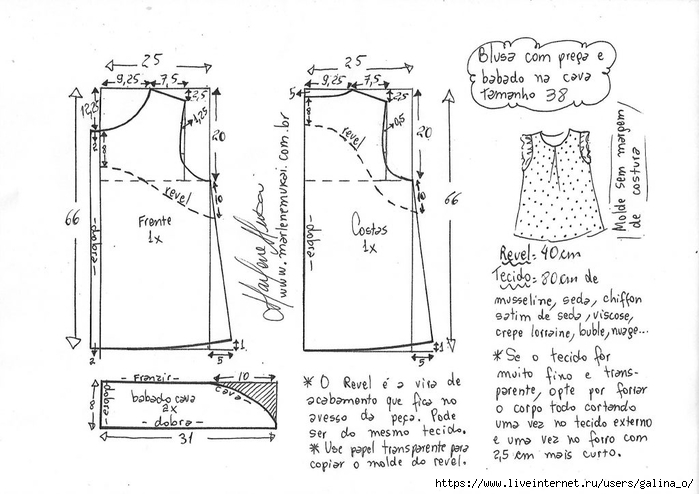 25
9,25
7,5
2,5
12,25
1,25
20
2
8
revel
8
66
Frente
1x
dobra
2
5
1
Marlene Mukai
www.marlenemukai.com.br
25
9,25
7,5
5
2,5
8
0,5
20
revel
8
66
Costas
1x
dobra
5
1
Blusa com prega e
babado na cava
Tamanho 38
Molde sem margem
de costura
Revel= 40cm
Tecido= 80cm de
musseline, seda, chiffon
satim de seda, viscose,
crepe lorraine, buble, nuage...
* Se o tecido for
muito fino e trans-
parente, opte por forrar
o corpo todo cortando
uma vez no tecido externo
e uma vez no forro com
2,5 cm mais curto.
Franzir
10
cava
8
dobra
babado cava
2x
dobra
31
* O Revel é a vira de
acabamento que fica no
avesso da peça. Pode
ser do mesmo tecido.
* Use papel transparente para
copiar o molde do revel.
https://www.liveinternet.ru/users/galina_o/